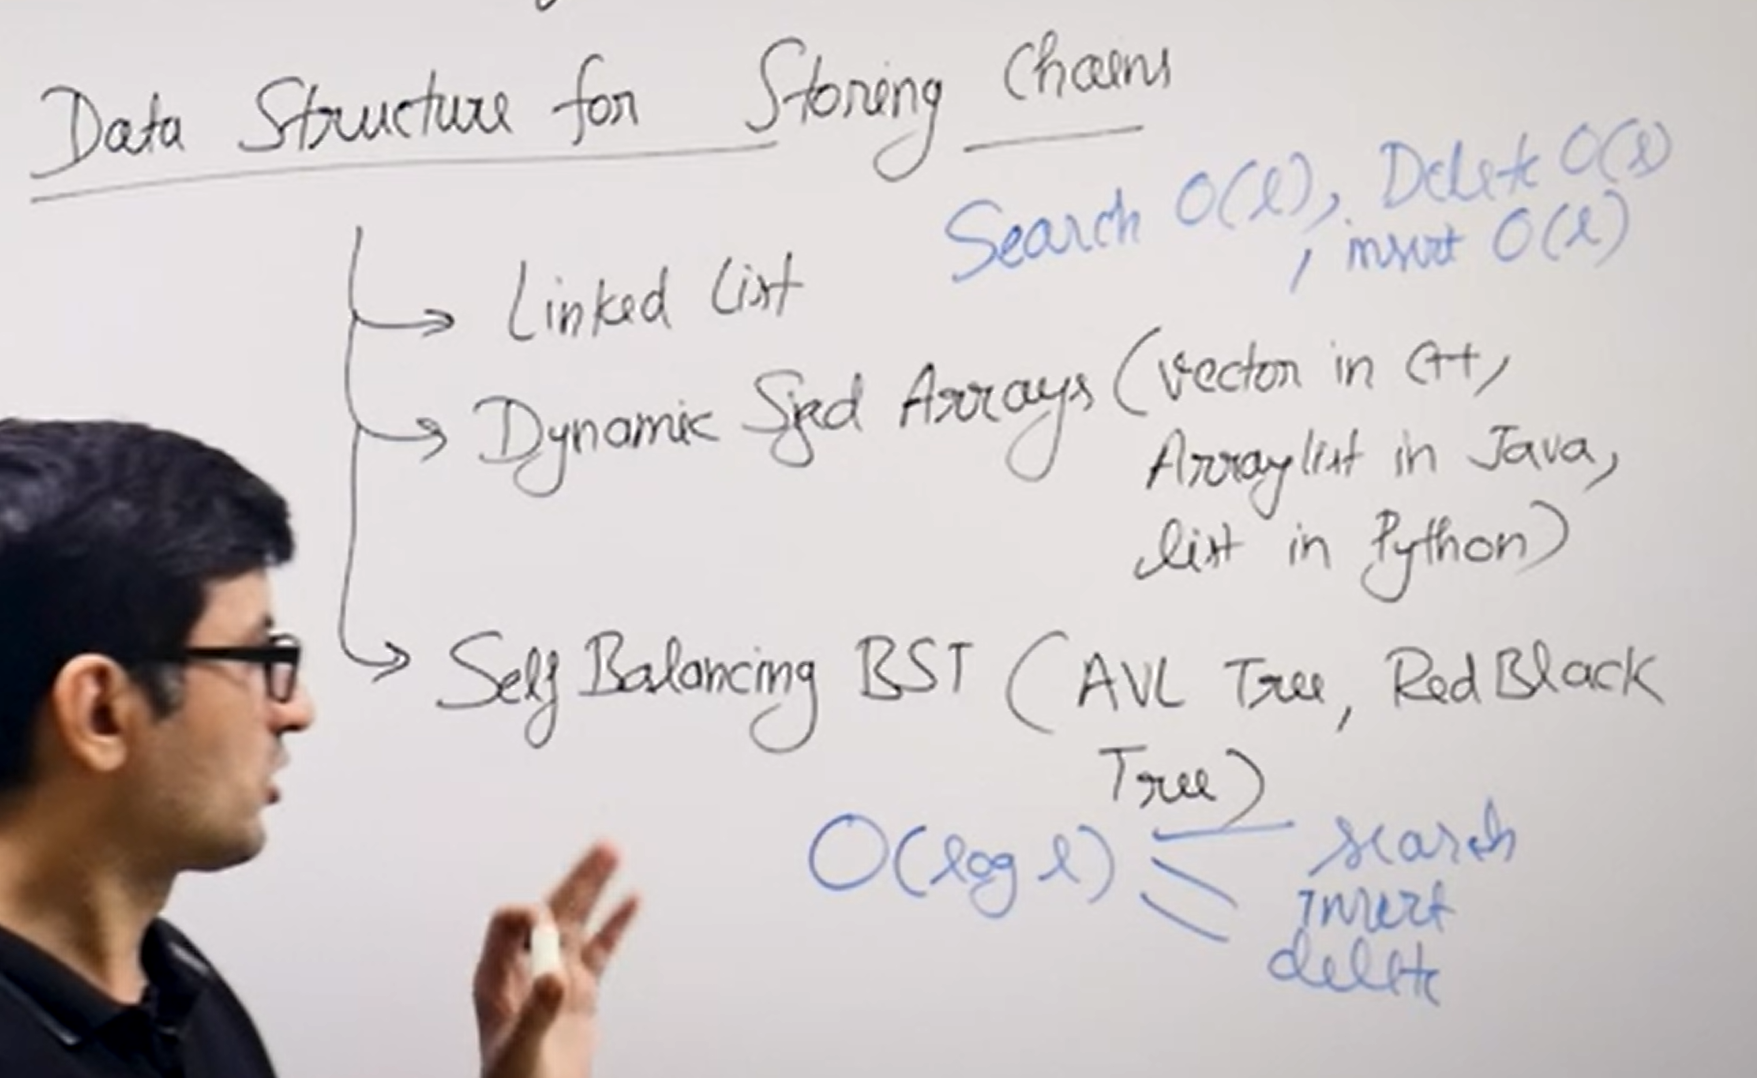 Data Structure for Storing Chains
Search O(l), Delete O(l)
, insert O(l)
Linked List
Dynamic Sized Arrays (vector in C++,
Arraylist in Java,
list in Python)
Self Balancing BST (AVL Tree, Red Black
Tree)
O(log l)
search
insert
delete